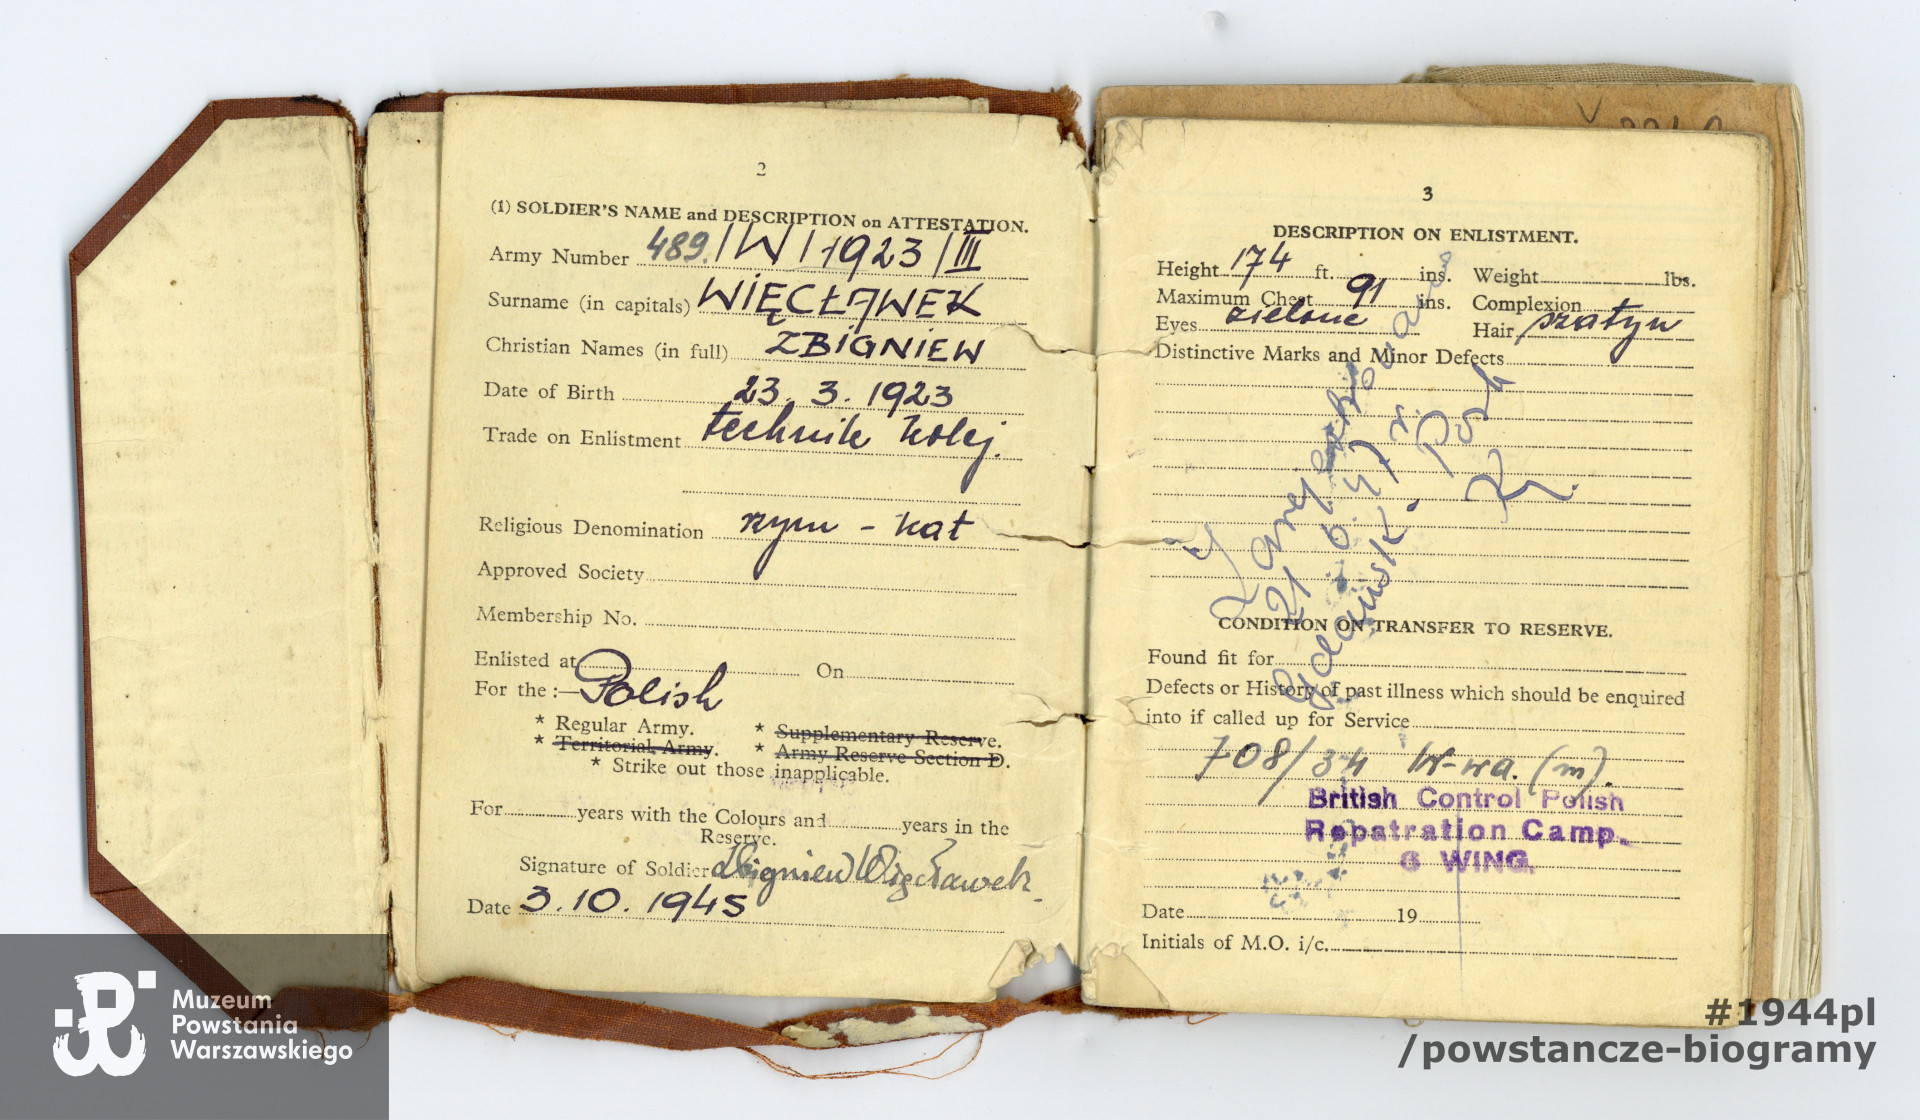 2
(1) SOLDIER'S NAME and DESCRIPTION on ATTESTATION.
Army Number 489./W/1923/III
Surname (in capitals) WIĘCŁAWEK
Christian Names (in full) ZBIGNIEW
Date of Birth 23. 3. 1923
Trade on Enlistment technik kolej.
Religious Denomination rzym - kat
Approved Society
Membership No.
Enlisted at On
For the :— Polish
* Regular Army. * Supplementary Reserve.
* Territorial Army. * Army Reserve Section D.
* Strike out those inapplicable.
For years with the Colours and years in the
Reserve.
Signature of Soldier Zbigniew Więcławek
Date 3.10.1945
3
DESCRIPTION ON ENLISTMENT.
Height 174 ft. ins. Weight lbs.
Maximum Chest 91 ins. Complexion
Eyes zielone Hair szatyn
Distinctive Marks and Minor Defects
Zarejestrowano
21 6 47 r.
Gdańsk. Port
CONDITION ON TRANSFER TO RESERVE.
Found fit for
Defects or History of past illness which should be enquired
into if called up for Service
708/34 W-wa. (m).
British Control Polish
Repatration Camp.
6 WING.
Date 19
Initials of M.O. i/c.
Muzeum
Powstania
Warszawskiego
#1944pl
/powstancze-biogramy